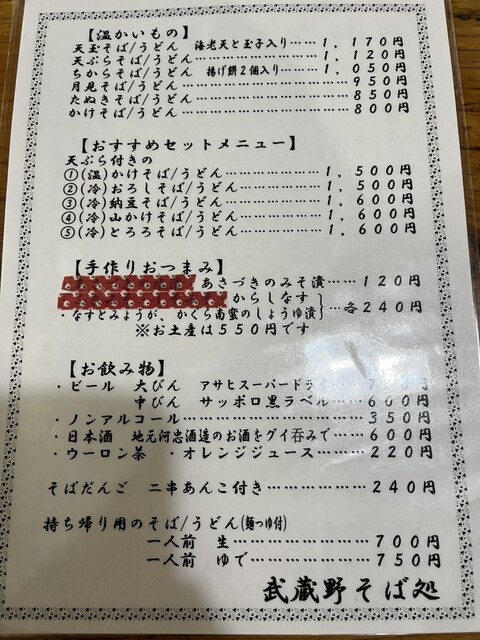 【温かいもの】
天玉そば/うどん 海老天と玉子入り……1,170円
天ぷらそば/うどん……………………1,120円
ちからそば/うどん 揚げ餅2個入り……1,050円
月見そば/うどん………………………950円
たぬきそば/うどん……………………850円
かけそば/うどん………………………800円
【おすすめセットメニュー】
天ぷら付きの
①(温)かけそば/うどん……………1,500円
②(冷)おろしそば/うどん…………1,500円
③(冷)納豆そば/うどん……………1,600円
④(冷)山かけそば/うどん…………1,600円
⑤(冷)とろろそば/うどん…………1,600円
【手作りおつまみ】
あさづきのみそ漬……120円
からしなす
・なすとみょうが、かぐら南蜜のしょうゆ漬}…各240円
※お土産は550円です
【お飲み物】
・ビール 大びん アサヒスーパードライ
中びん サッポロ黒ラベル……600円
・ノンアルコール…………………350円
・日本酒 地元河忠酒造のお酒をグイ呑みで……600円
・ウーロン茶 ・オレンジジュース……220円
そばだんご 二串あんこ付き…………240円
持ち帰り用のそば/うどん(麺つゆ付)
一人前 生……………700円
一人前 ゆで…………750円
武蔵野そば処